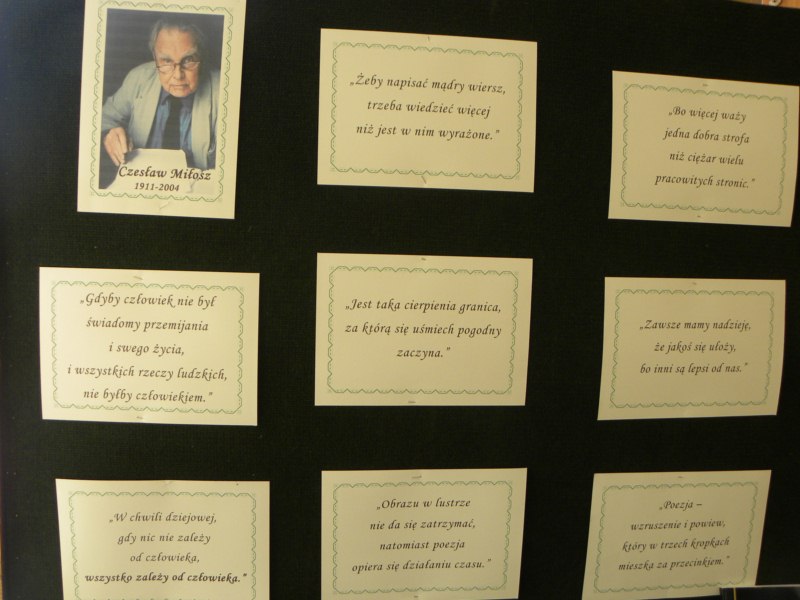 Czesław Miłosz
1911-2004
„Żeby napisać mądry wiersz,
trzeba wiedzieć więcej
niż jest w nim wyrażone.”
„Bo więcej waży
jedna dobra strofa
niż ciężar wielu
pracowitych stronic.”
„Gdyby człowiek nie był
świadomy przemijania
i swego życia,
i wszystkich rzeczy ludzkich,
nie byłby człowiekiem.”
„Jest taka cierpienia granica,
za którą się uśmiech pogodny
zaczyna.”
„Zawsze mamy nadzieję,
że jakoś się ułoży,
bo inni są lepsi od nas.”
„W chwili dziejowej,
gdy nic nie zależy
od człowieka,
wszystko zależy od człowieka.”
„Obrazu w lustrze
nie da się zatrzymać,
natomiast poezja
opiera się działaniu czasu.”
„Poezja –
wzruszenie i powiew,
który w trzech kropkach
mieszka za przecinkiem.”